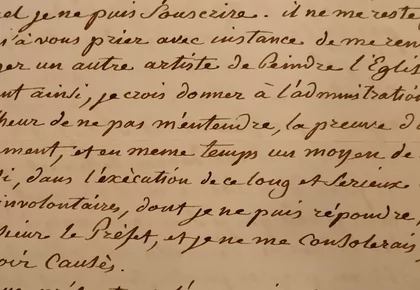 el je ne puis Souscrire. il ne me reste
'à vous prier avec instance de me ren
ger un autre artiste de Peindre l'Eglis
nt ainsi, je crois donner à l'admnistration
heur de ne pas m'entendre, la preuve d
ment, et en meme temps un moyen de
i, dans l'exècution de ce long et Serieux
involontaires, dont je ne puis répondre,
sieur le Préfet, et je ne me Consolerais
oir Causès.